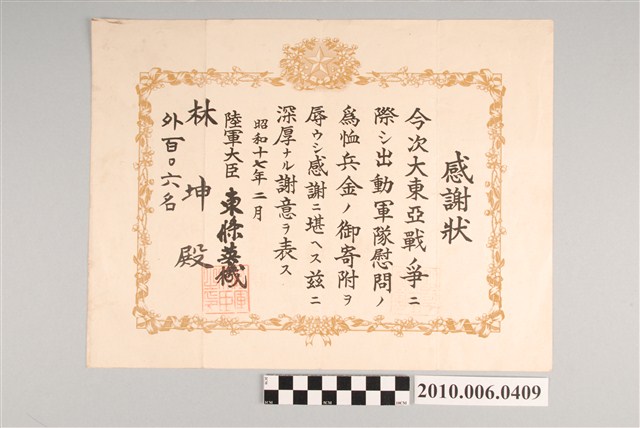 感謝狀
今次大東亞戰爭ノニ
際シ出動軍隊慰問ノ
爲恤兵金ノ御寄附ヲ
辱ウシ感謝ニ堪ヘス玆ニ
深厚ナル謝意ヲ表ス
昭和十七年二月
陸軍大臣 東條英機
林坤殿
外百〇六名
2010.006.0409